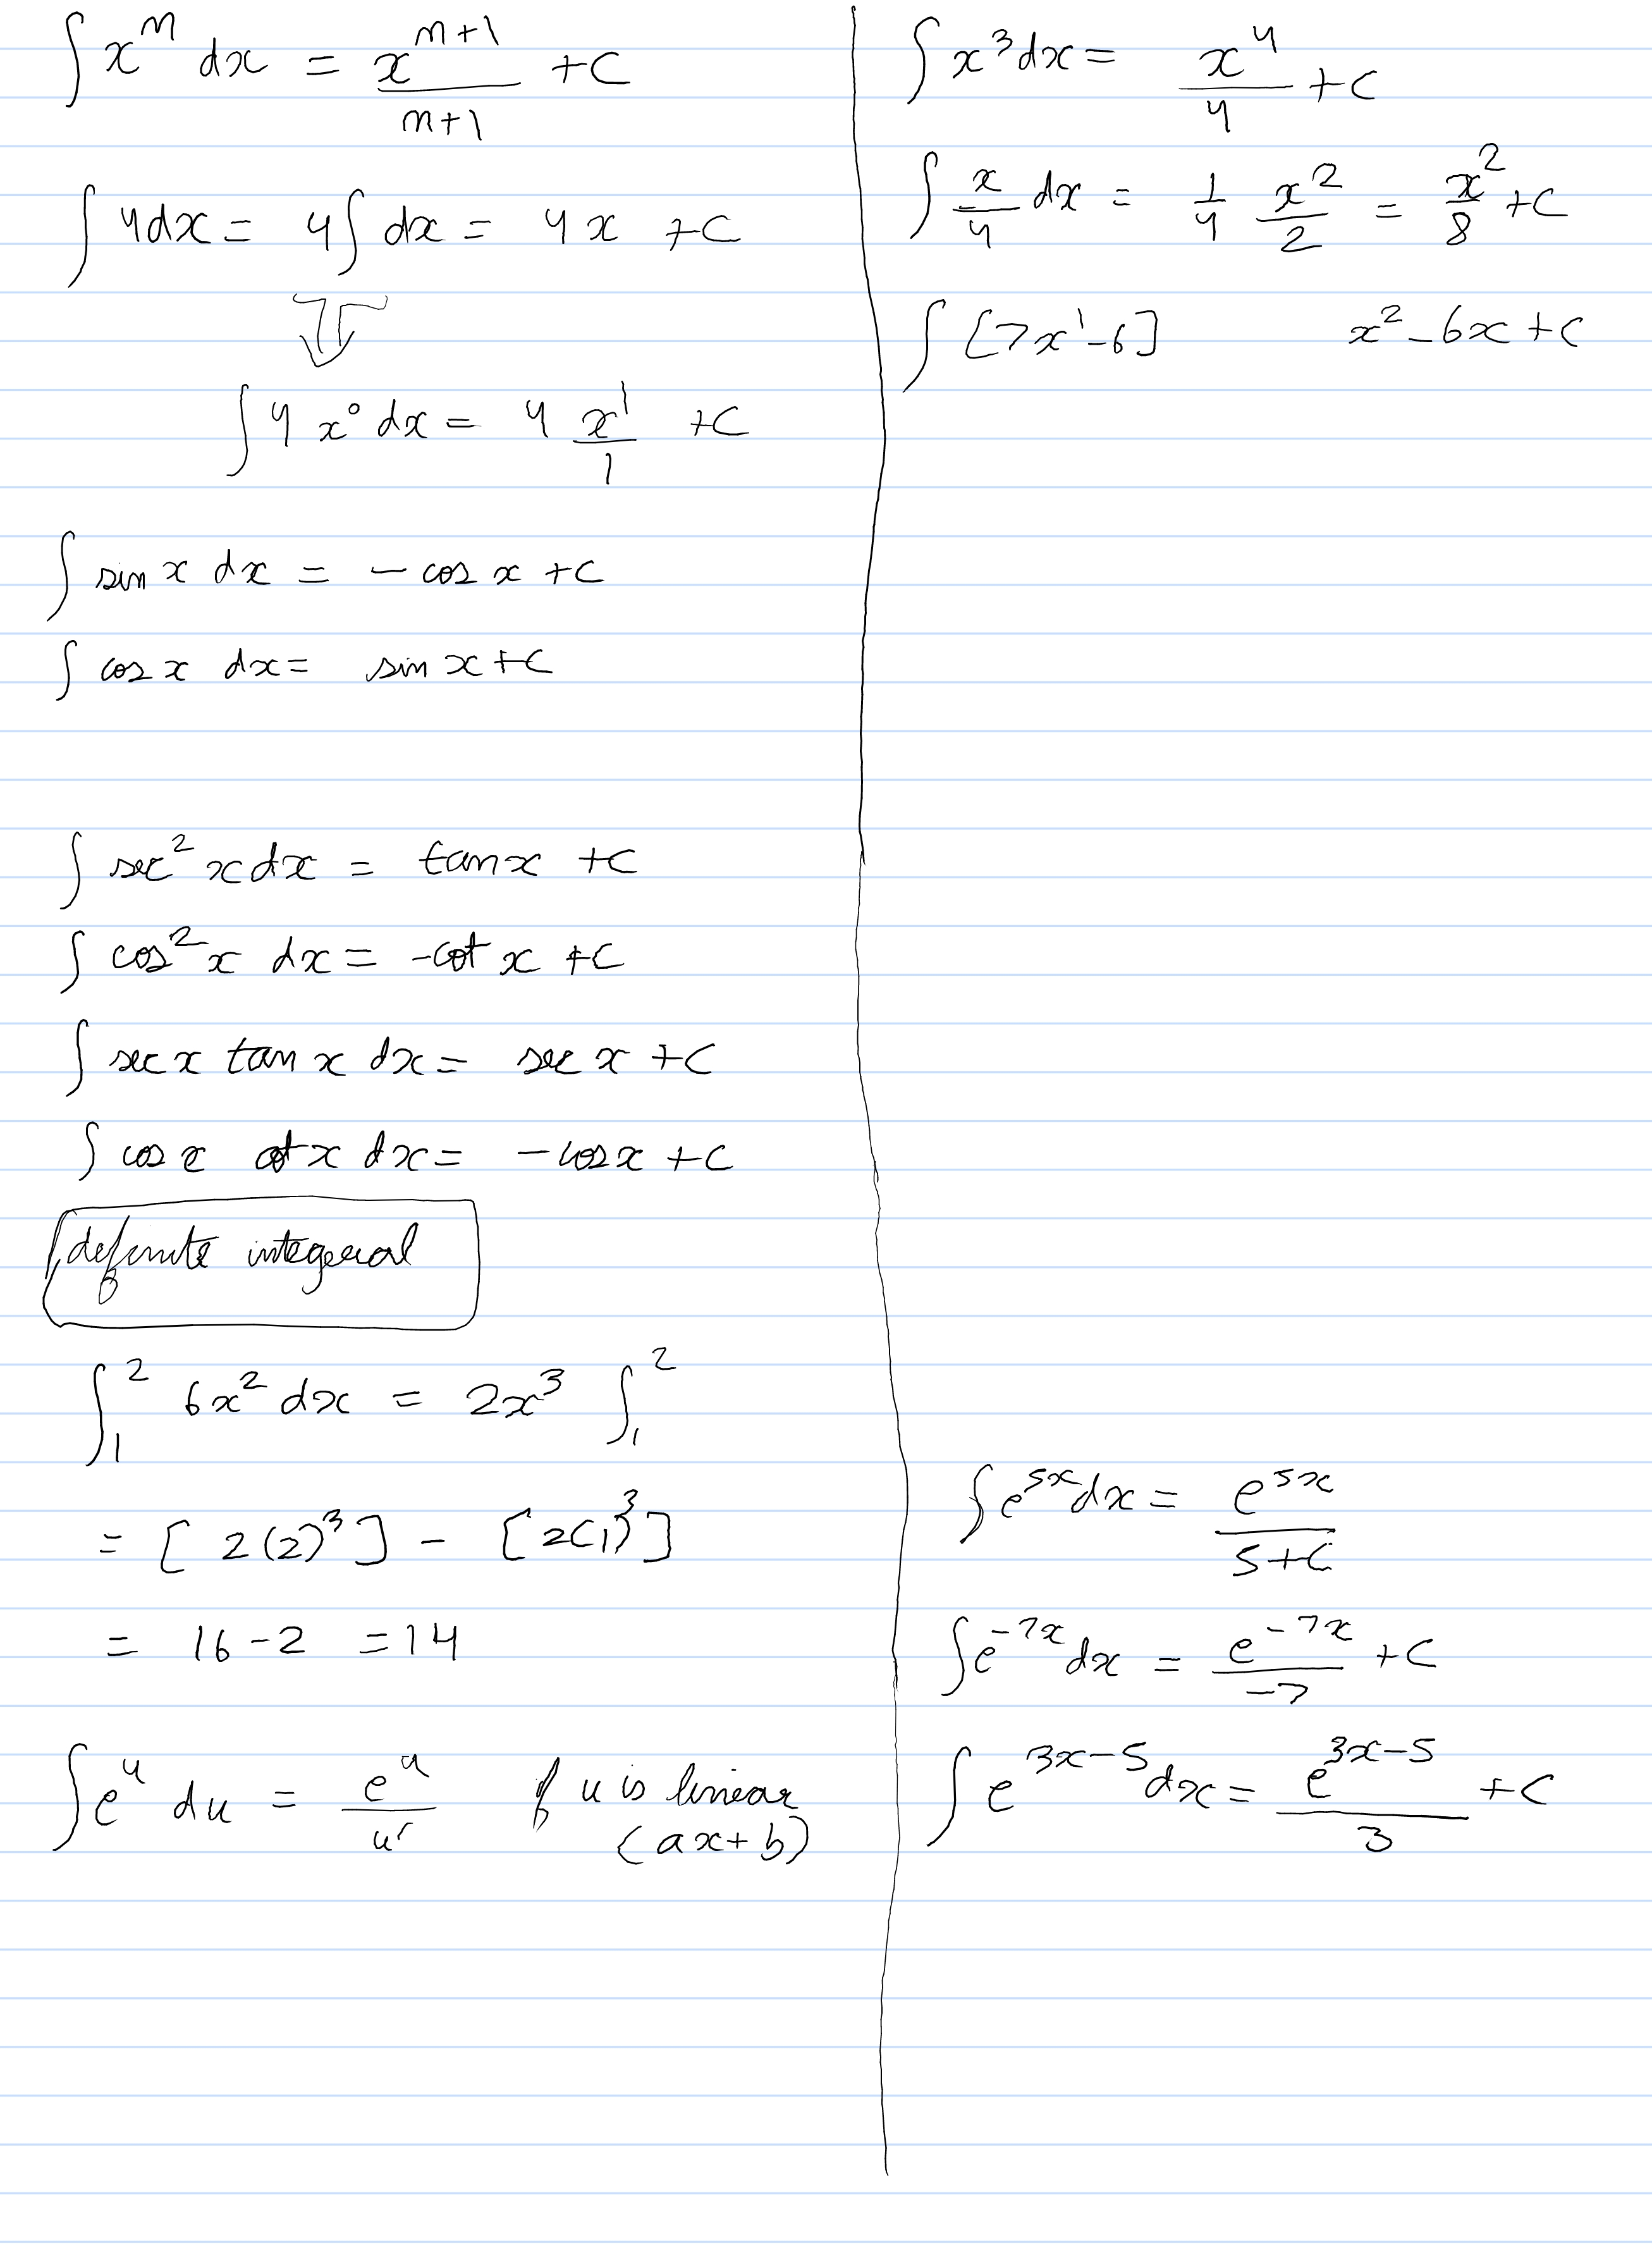 ∫ xⁿ dx = xⁿ⁺¹/n+1 +C
∫ 4dx = 4∫ dx = 4x +C
∫ 4 x⁰ dx = 4 x¹/1 +C
∫ sin x dx = - cos x +C
∫ cos x dx = sin x +C
∫ sec² x dx = tan x +C
∫ cos² x dx = -cot x +C
∫ sec x tan x dx = sec x +C
∫ cos x cot x dx = - cos x +C
definite integeral
∫₁² 6x² dx = 2x³ ∫₁²
= [ 2(2)³ ] - [ 2(1)³ ]
= 16 - 2 = 14
∫ eᵘ du = eᵘ/u' if u is linear
(ax+b)
∫ x³ dx = x⁴/4 +C
∫ x/4 dx = 1/4 x²/2 = x²/8 +C
∫ [7x¹-6] x² - 6x +C
∫ e⁵ˣ dx = e⁵ˣ/5+C
∫ e⁻⁷ˣ dx = e⁻⁷ˣ/-7 +C
∫ e³ˣ⁻⁵ dx = e³ˣ⁻⁵/3 +C